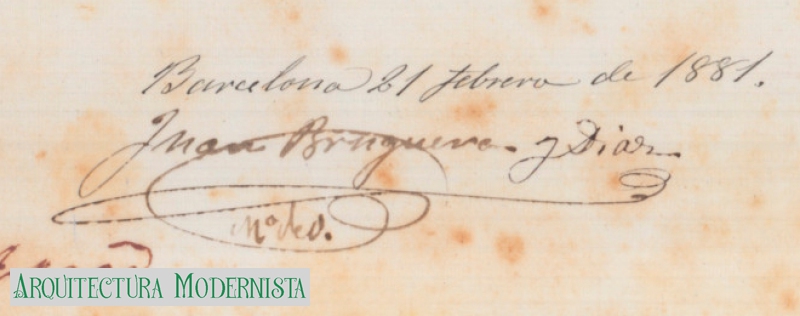 Barcelona 21 febrero de 1881.
Juan Bruguera y Diaz
Mº de O.
ARQUITECTURA MODERNISTA